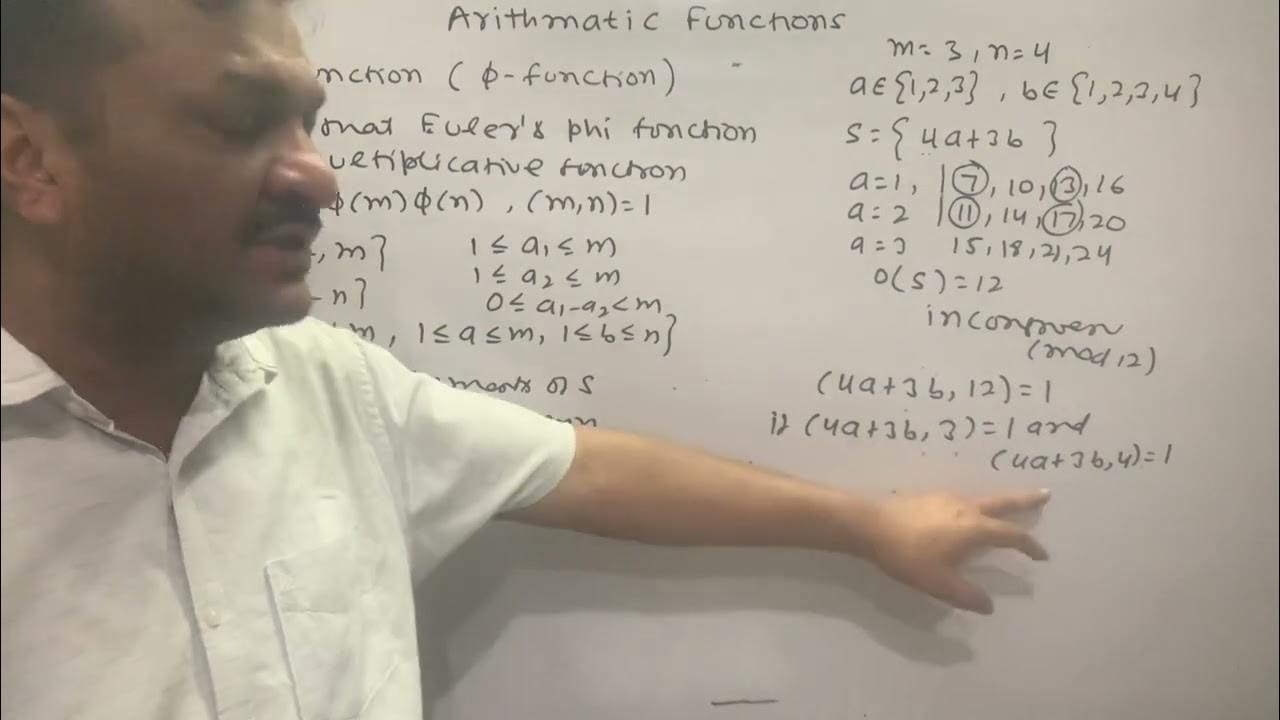 Arithmatic Functions
nction ( φ-function)
Euler's phi function
multiplicative function
φ(m) φ(n) , (m,n)=1
, m} 1 ≤ a₁ ≤ m
1 ≤ a₂ ≤ m
n} 0 ≤ a₁-a₂ < m
m , 1≤a≤m, 1≤b≤n}
ments of S
m= 3 , n=4
a∈{1,2,3} , b∈{1,2,3,4}
S={ 4a+3b }
a=1, | 7, 10, 13, 16
a=2 | 11, 14, 17, 20
a=3 15, 18, 21, 24
O(S)=12
(mod 12)
(4a+3b, 12)=1
if (4a+3b, 3)=1 and
(4a+3b,4)=1